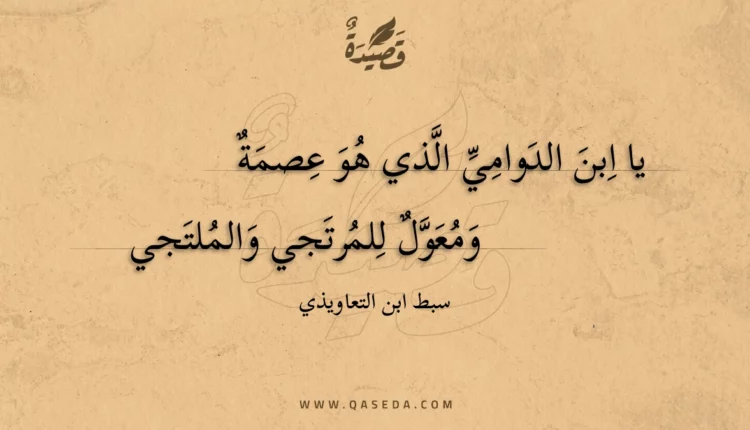 قَصِيدَةٌ
يا اِبنَ الدَوامِيِّ الَّذي هُوَ عِصمَةٌ
وَمُعَوَّلٌ لِلمُرتَجي وَالمُلتَجي
سبط ابن التعاويذي
WWW.QASEDA.COM